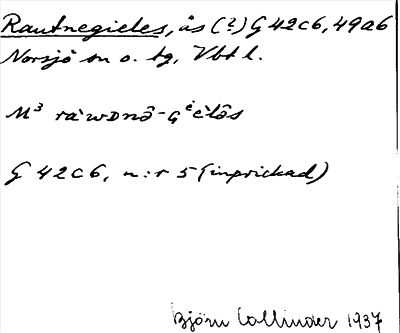 Rautnegieles, ås (?) G 42c6, 49a6
Norsjö sn o. tg, Vbt l.
M³ ràwDnô-
G 42c6, n:r 5 (inprickad)
Björn Collinder 1937